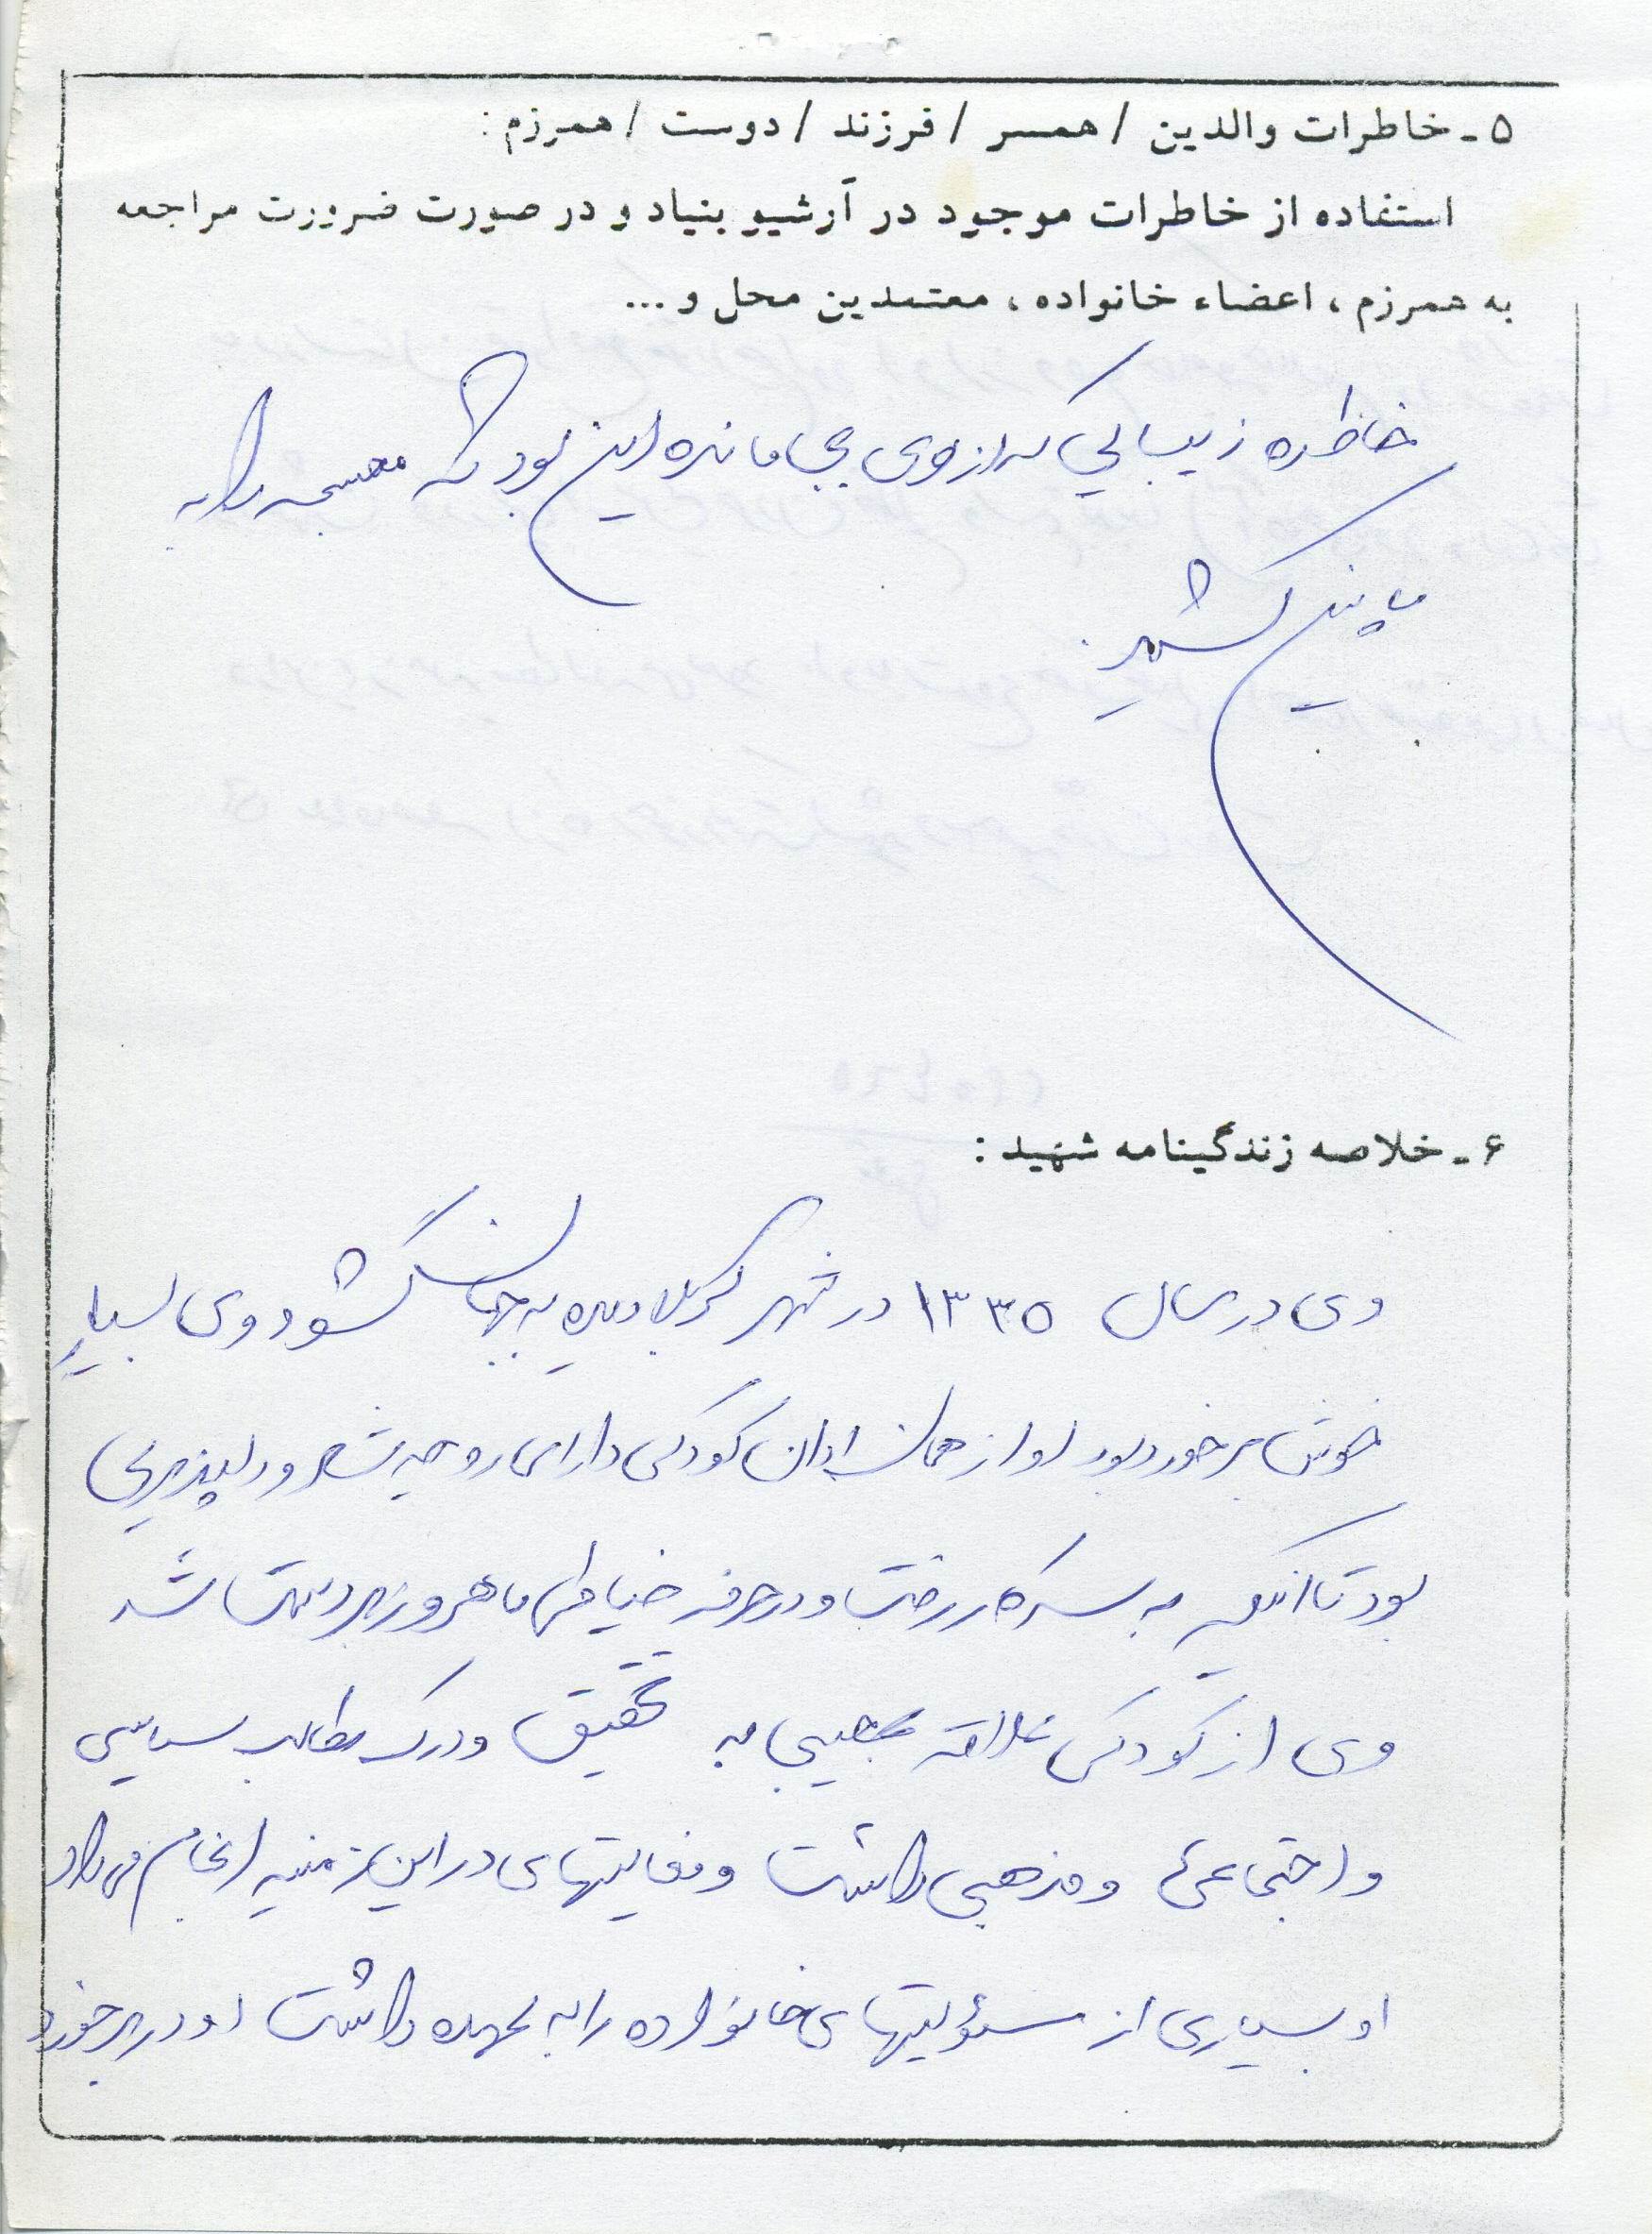 ۵ـ خاطرات والدین / همسر / فرزند / دوست / همرزم :
استفاده از خاطرات موجود در آرشیو بنیاد و در صورت ضرورت مراجعه
به همرزم ، اعضاء خانواده ، معتمدین محل و ...
خاطره زیبایی که از وی بجا مانده این بود که مجسمه را به
پایین کشید.
۶ـ خلاصه زندگینامه شهید :
وی در سال ۱۳۳۵ در شهر کربلا دیده به جهان گشود وی بسیار
خوش برخورد بود او از همان اوان کودکی دارای روحیه شاد و دلپذیری
بود تا اینکه به سر کار رفت و در حرفه خیاطی ماهر و زبردست شد
وی از کودکی علاقه عجیبی به تحقیق و درک مطالب سیاسی
و اجتماعی و مذهبی داشت و فعالیتهای در این زمینه انجام می داد
او بسیاری از مسئولیتهای خانواده را به عهده داشت او در برخورد